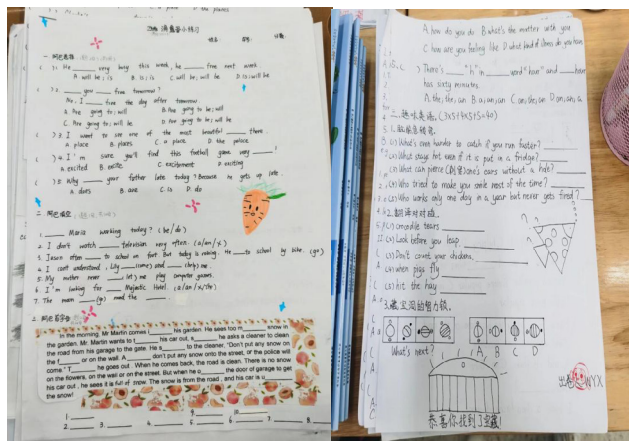 一. 阿巴选择
( ) 1. He ____ very busy this week, he ____ free next week.
A. will be; is B. is; is C. will be; will be D. is; will be
( ) 2. ____ you ____ free tomorrow?
No, I ____ free the day after tomorrow.
A. Are going to; will B. Are going to be; will
C. Are going to; will be D. Are going to be; will be
( ) 3. I want to see one of the most beautiful ____ there.
A. place B. places C. a place D. the palace
( ) 4. I'm sure you'll find this football game very ____!
A. excited B. excite C. excitement D. exciting
( ) 5. Why ____ your father late today? Because he gets up late.
A. does B. are C. is D. do
二. 阿巴填空
1. ____ Maria working today? (be/do)
2. I don't watch ____ television very often. (a/an/x)
3. Jason often ____ to school on foot. But today is raining. He ____ to school by bike. (go)
4. I can't understand, Lily ____ (come) and ____ (help) me.
5. My mother never ____ (let) me play computer games.
6. I'm looking for ____ Majestic Hotel. (a/an/x/the)
7. The man ____ (go) mad the ____.
In the morning, Mr Martin comes i____ his garden. He sees too m____ snow in
the garden. Mr Martin wants to t____ his car out, s____ he asks a cleaner to clean
the road from his garage to the gate. He s____ to the cleaner, "Don't put any snow on
the f____ or on the wall. A____ don't put any snow onto the street, or the police will
come." T____ he goes out. When he comes back, the road is clean. There is no snow
on the flowers, on the wall or on the street. But when he o____ the door of garage to get
his car out, he sees it is full of snow. The snow is from the road, and his car is u____
the snow!
1. 2. 3. 4. 5. 6. 7. 8. 9. 10.
A. how do you do B. what's the matter with you
C. how are you feeling like D. what kind of illness do you have
( ) There's ____ "h" in ____ word "han" and ____ han
has sixty minutes.
A. the; the; an B. a; an; an C. an; the; an D. an; an; a
三. 趣味英语. (3x5+4x5+5=40)
(1) What's even harder to catch if you run faster? ____
(2) What stays hot even if it is put in a fridge? ____
(3) What can pierce (刺穿) one's ears without a hole? ____
(4) Who tried to make you smile most of the time? ____
(5) Who works only one day in a year but never gets fired? ____
2. 翻译对对碰.
(1) crocodile tears ____
(2) Look before you leap ____
(3) Don't count your chickens. ____
(4) when pigs fly ____
(5) hit the hay ____
What's next? A B C D
恭喜你找到了宝藏!